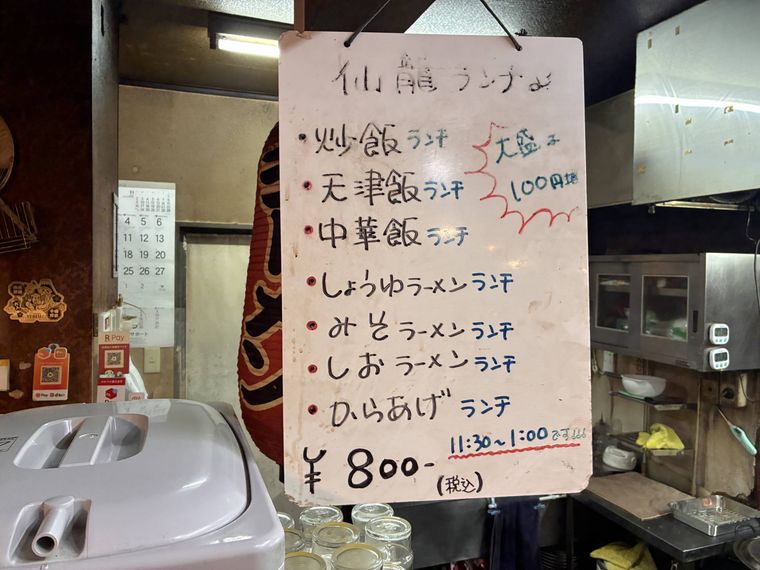 仙龍ランチ
・炒飯ランチ
・天津飯ランチ
・中華飯ランチ
大盛は
100円増
・しょうゆラーメンランチ
・みそラーメンランチ
・しおラーメンランチ
・からあげランチ
11:30〜1:00です
¥800-
(税込)
4 5 6
11 12 13
18 19 20
25 26 27
R Pay